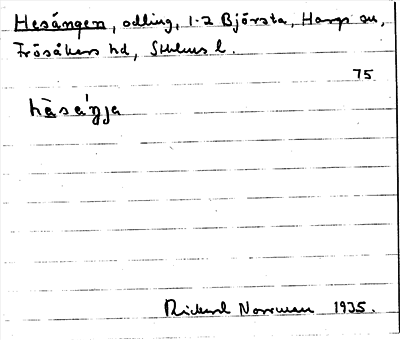 Hesängen, odling, 1-2 Björsta, Hargs sn,
Frösåkers hd, Sthlms l.
75
hèsæ̀ŋja
Rickard Norrman 1935.